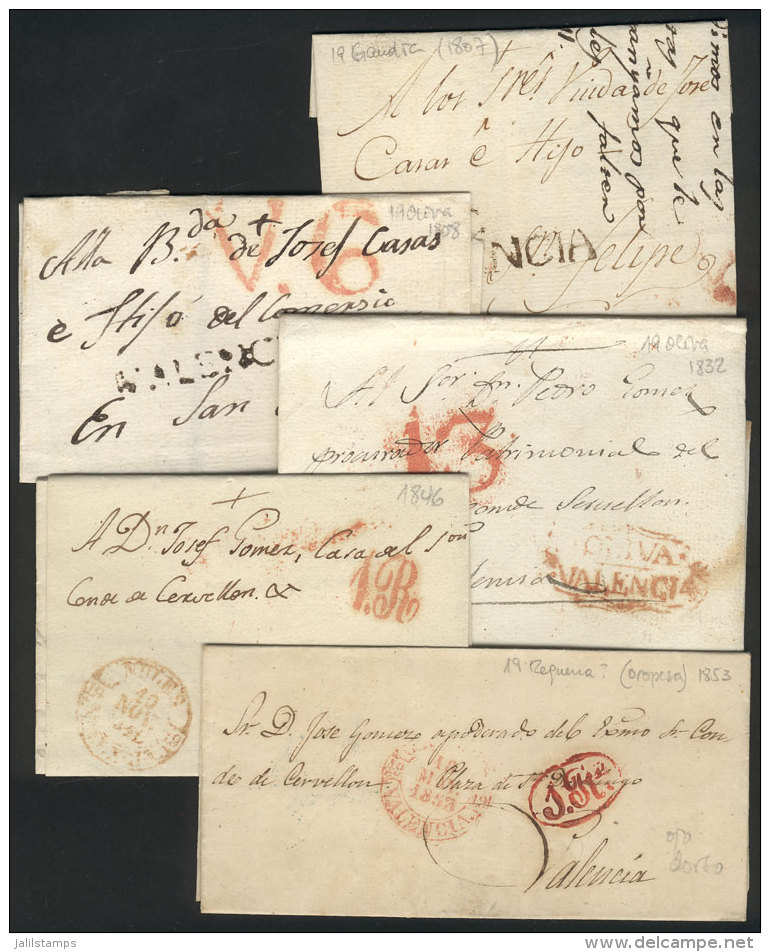 19 Gandía (1807)
A los Sres Viuda de Jose
Casas é Hijo
Sn Felipe
NCIA
dimos en las
que le
por
19 Oliva
1808
V.6
Alla B.da de Josef Casas
e Hijo del Comersio
VALENC
En San
19 Oliva
1832
Al Sor. Dn. Pedro Gomez
13
procurador Patrimonial del
Conde Servellon
OLIVA
VALENCIA
1846
A Dn Josef Gomez, Casa del Sor
Conde de Cervellon. &
1.R
19
NOV
19 Requena? (oropesa) 1853
Sr. D. Jose Gomez apoderado del Exmo Sr. Con-
de de Cervellon Plaza de Sto Domingo
1853
VALENCIA
1.R.
Valencia
ojo
dorto
© jalilstamps
www.delcampe.net